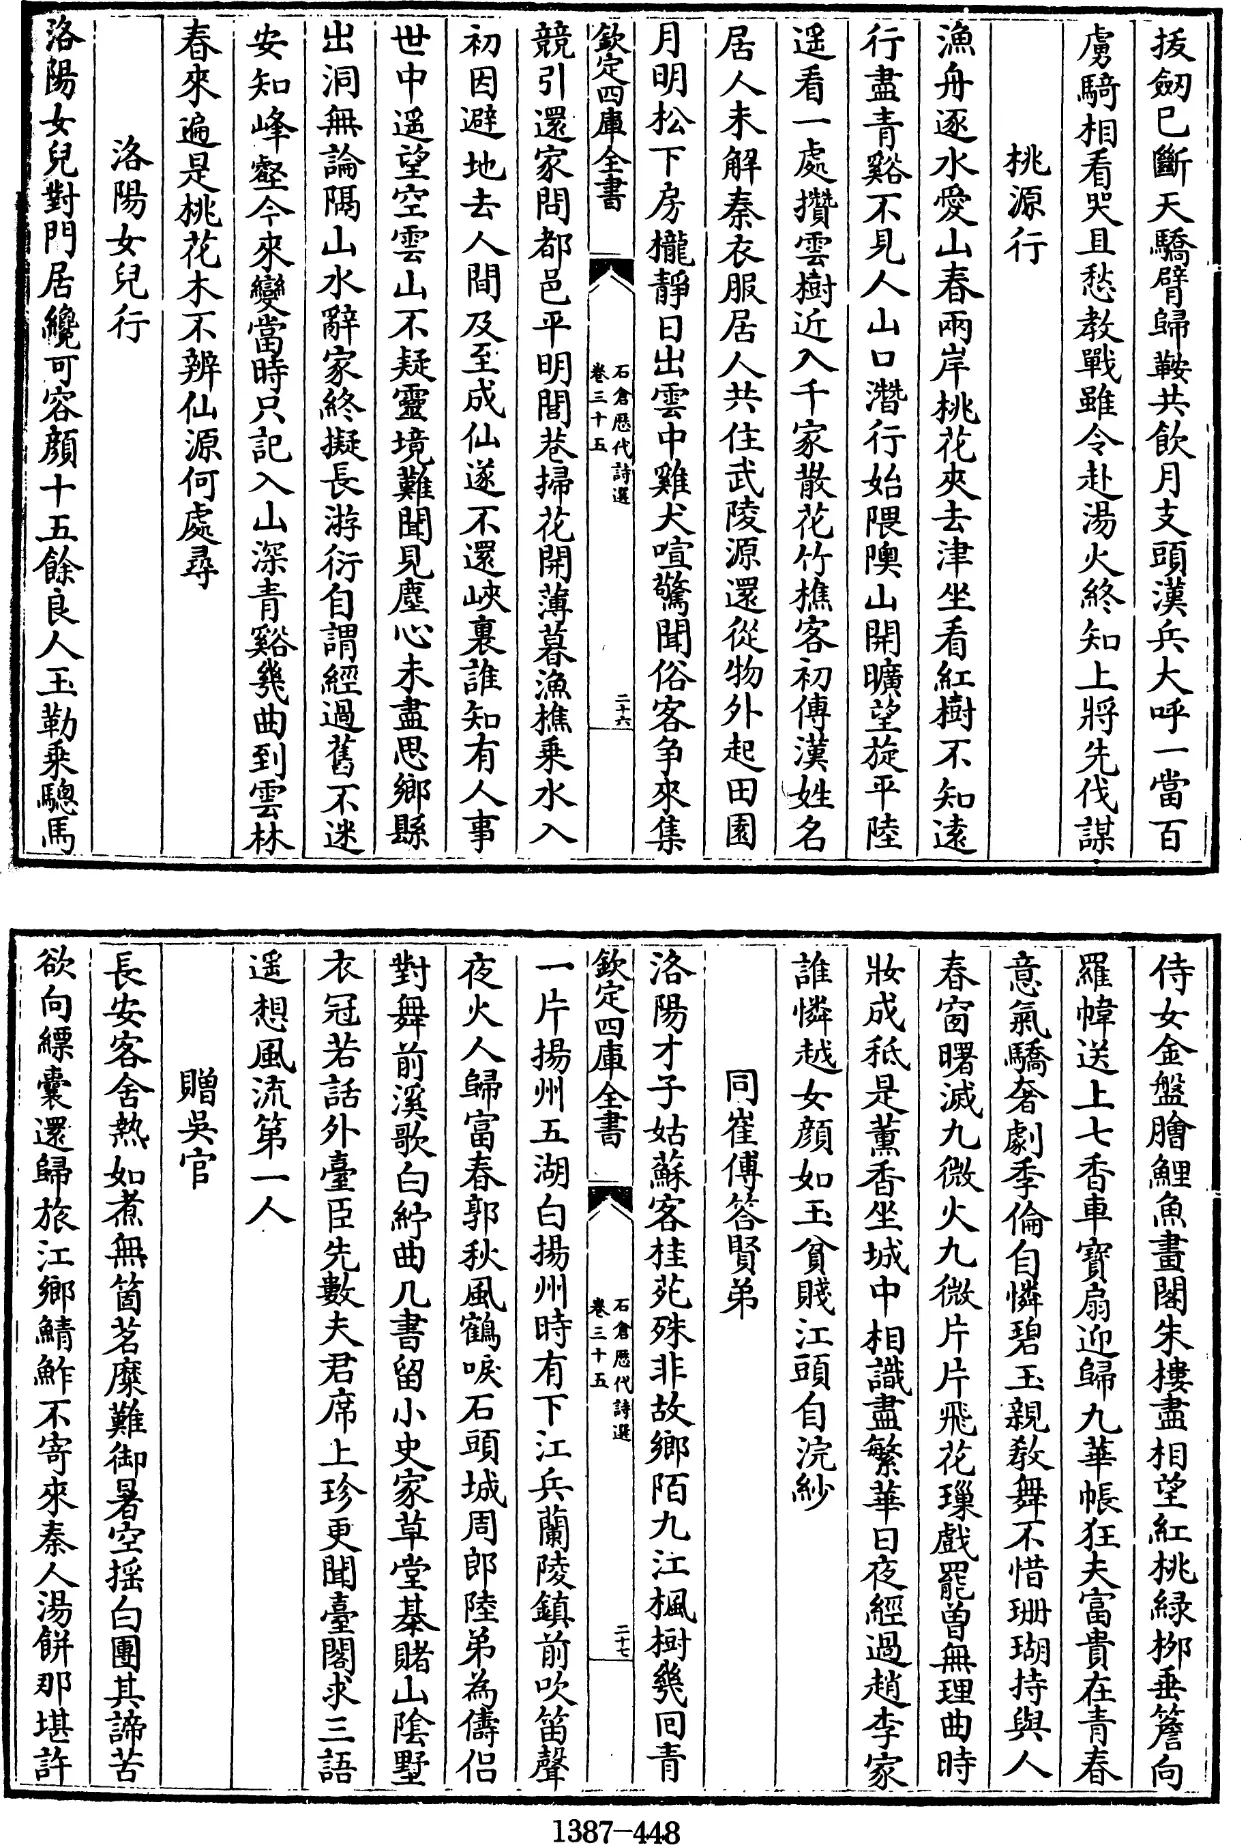 拔劒已斷天驕臂歸鞍共飲月支頭漢兵大呼一當百
虜騎相看哭且愁教戰雖令赴湯火終知上將先伐謀
桃源行
漁舟逐水愛山春兩岸桃花夾去津坐看紅樹不知遠
行盡青谿不見人山口潛行始隈隩山開曠望旋平陸
遥看一處攢雲樹近入千家散花竹樵客初傳漢姓名
居人未解秦衣服居人共住武陵源還從物外起田園
月明松下房櫳靜日出雲中雞犬喧驚聞俗客争來集
欽定四庫全書
石倉歷代詩選
卷三十五
二十六
競引還家問都邑平明閭巷掃花開薄暮漁樵乘水入
初因避地去人間及至成仙遂不還峽裏誰知有人事
世中遥望空雲山不疑靈境難聞見塵心未盡思鄉縣
出洞無論隔山水辭家終擬長游衍自謂經過舊不迷
安知峰壑今來變當時只記入山深青谿幾曲到雲林
春來遍是桃花水不辨仙源何處尋
洛陽女兒行
洛陽女兒對門居纔可容顔十五餘良人玉勒乘驄馬
侍女金盤膾鯉魚畫閣朱樓盡相望紅桃緑栁垂簷向
羅幃送上七香車寳扇迎歸九華帳狂夫富貴在青春
意氣驕奢劇季倫自憐碧玉親教舞不惜珊瑚持與人
春窗曙滅九微火九微片片飛花璅戲罷曾無理曲時
妝成秪是薰香坐城中相識盡繁華日夜經過趙李家
誰憐越女顔如玉貧賤江頭自浣紗
同崔傅答賢弟
洛陽才子姑蘇客桂苑殊非故鄉陌九江楓樹幾回青
欽定四庫全書
石倉歷代詩選
卷三十五
二十七
一片揚州五湖白揚州時有下江兵蘭陵鎮前吹笛聲
夜火人歸富春郭秋風鶴唳石頭城周郎陸弟為儔侣
對舞前溪歌白紵曲几書留小史家草堂棊賭山陰墅
衣冠若話外臺臣先數夫君席上珍更聞臺閣求三語
遥想風流第一人
贈吳官
長安客舍熱如煮無箇茗糜難御暑空摇白團其諦苦
欲向縹囊還歸旅江鄉鯖鮓不寄來秦人湯餅那堪許
1387-448